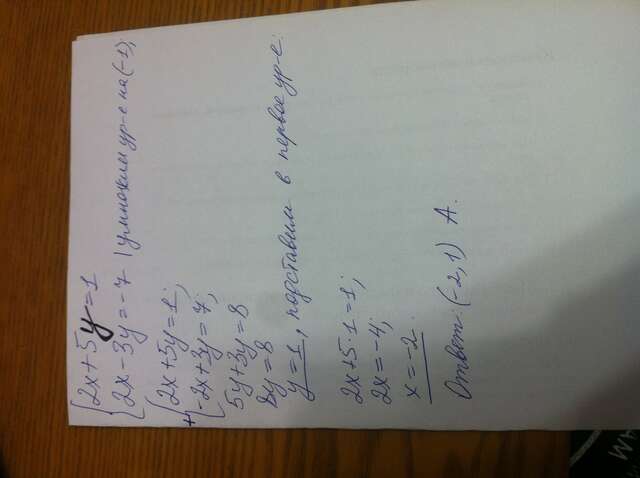 2x+5y=1
2x-3y=-7 | умножим ур-е на (-1);
2x+5y=1;
+
-2x+3y=7;
5y+3y=8
8y=8
y=1, подставим в первое ур-е:
2x+5·1=1;
2x=-4;
x=-2.
Ответ: (-2,1) А.